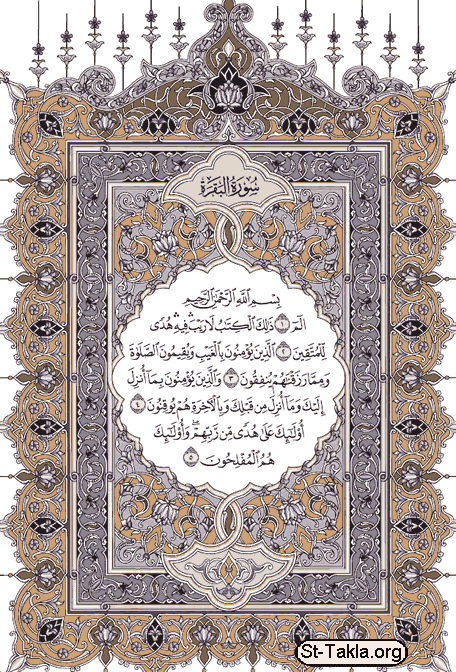 سُورَةُ البَقَرَةِ
بِسْمِ اللَّهِ الرَّحْمَٰنِ الرَّحِيمِ
الٓمٓ ١ ذَٰلِكَ الْكِتَٰبُ لَا رَيْبَ ۛ فِيهِ ۛ هُدًى
لِّلْمُتَّقِينَ ٢ الَّذِينَ يُؤْمِنُونَ بِالْغَيْبِ وَيُقِيمُونَ الصَّلَوٰةَ
وَمِمَّا رَزَقْنَٰهُمْ يُنفِقُونَ ٣ وَالَّذِينَ يُؤْمِنُونَ بِمَآ أُنزِلَ
إِلَيْكَ وَمَآ أُنزِلَ مِن قَبْلِكَ وَبِالْأَخِرَةِ هُمْ يُوقِنُونَ ٤
أُو۟لَٰٓئِكَ عَلَىٰ هُدًى مِّن رَّبِّهِمْ ۖ وَأُو۟لَٰٓئِكَ
هُمُ الْمُفْلِحُونَ ٥
St-Takla.org